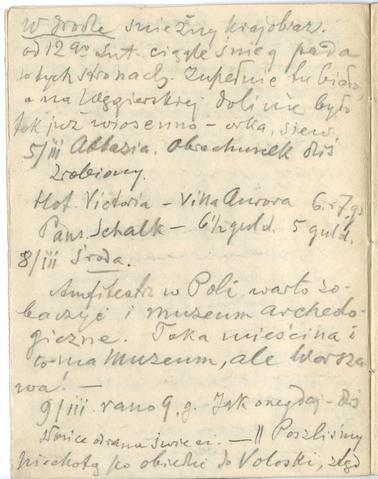 w drodze śnieżny krajobraz.
od 12 go lut. ciągle śnieg pada
w tych stronach. Zupełnie tu biało,
a na węgierskiej dolinie było
tak już wiosenno – orka, siew.
5/III Abbazia. Obrachunek dziś
zrobiony.
Hot. Victoria – Villa Aurora 6 i 7 g.
Pans. Schalk – 6 1/2 guld. 5 guld.
8/III Środa.
Amfiteatr w Poli warto zo-
baczyć i muzeum archeolo-
giczne. Taka mieścina i
to ma muzeum, ale Warsza
wa! –
9/III. rano 9. g. Jak onegdaj – dziś
słońce od rana świeci. – || Poszliśmy
piechotą po obiedzie do Voloski,